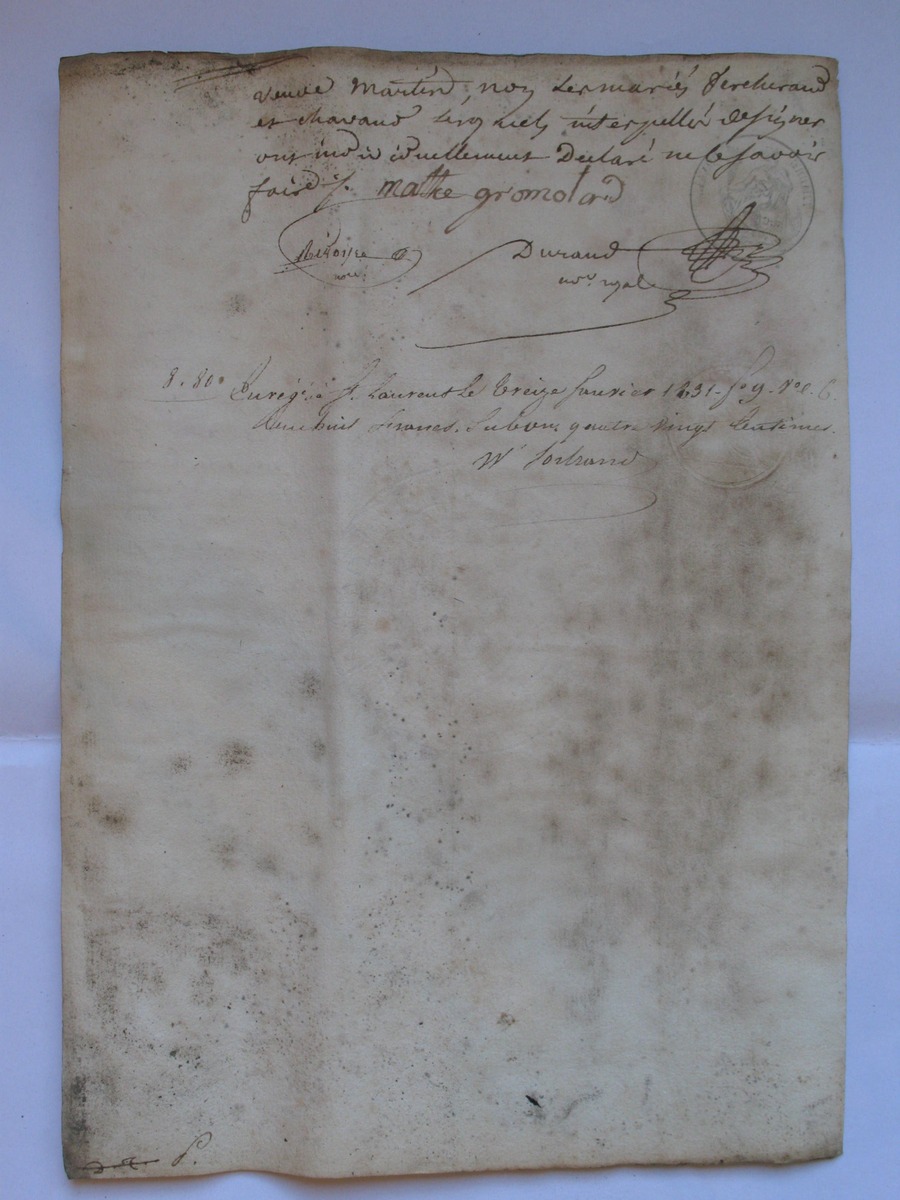 veuve Martin, non les mariés Percheraud
et chavand lesquels interpellés de signer
ont individuellement Declaré ne le savoir
faire /. mathe gromolard
Durand
not.re royal
8. 80c Enreg. à St. Laurent le treize Janvier 1831. fo 9. Vo c. 6.
huit francs. Subvon. quatre vingt Centimes.
P.